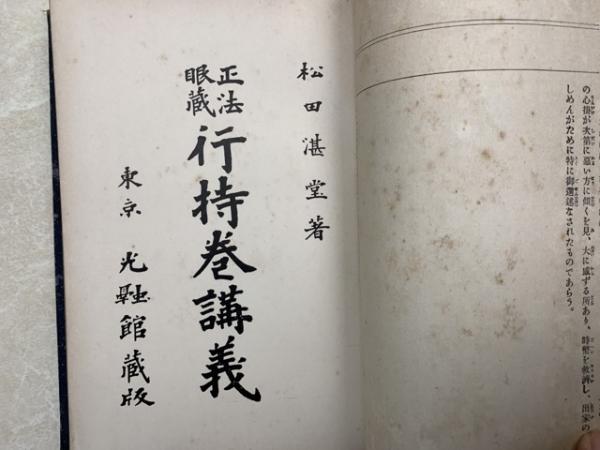 松田湛堂著
正法
眼蔵
行持巻講義
東京 光融館蔵版
の心掛が次第に惡い方に傾くを見、大に感ずる所あり、時弊を救濟し、出家の
しめんがために特に御選述なされたものであらう。